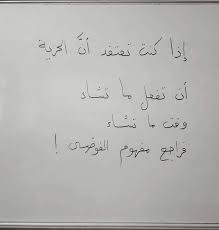 إذا كنت تعتقد أنَّ الحرية
أن تفعل ما تشاء
وقت ما تشاء
فراجع مفهوم الفوضى !